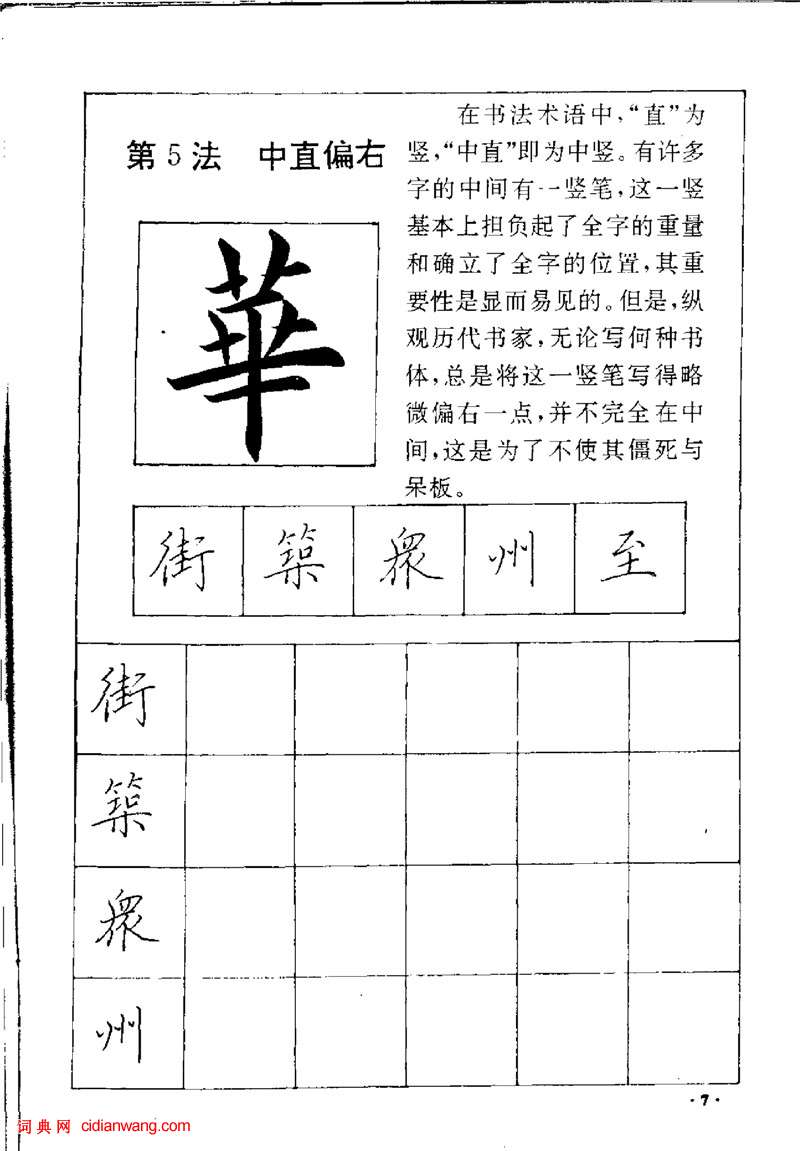 第5法 中直偏右
華
在书法术语中，“直”为
竖，“中直”即为中竖。有许多
字的中间有一竖笔，这一竖
基本上担负起了全字的重量
和确立了全字的位置，其重
要性是显而易见的。但是，纵
观历代书家，无论写何种书
体，总是将这一竖笔写得略
微偏右一点，并不完全在中
间，这是为了不使其僵死与
呆板。
街 築 衆 州 至
街
築
衆
州
·7·
词典网 cidianwang.com